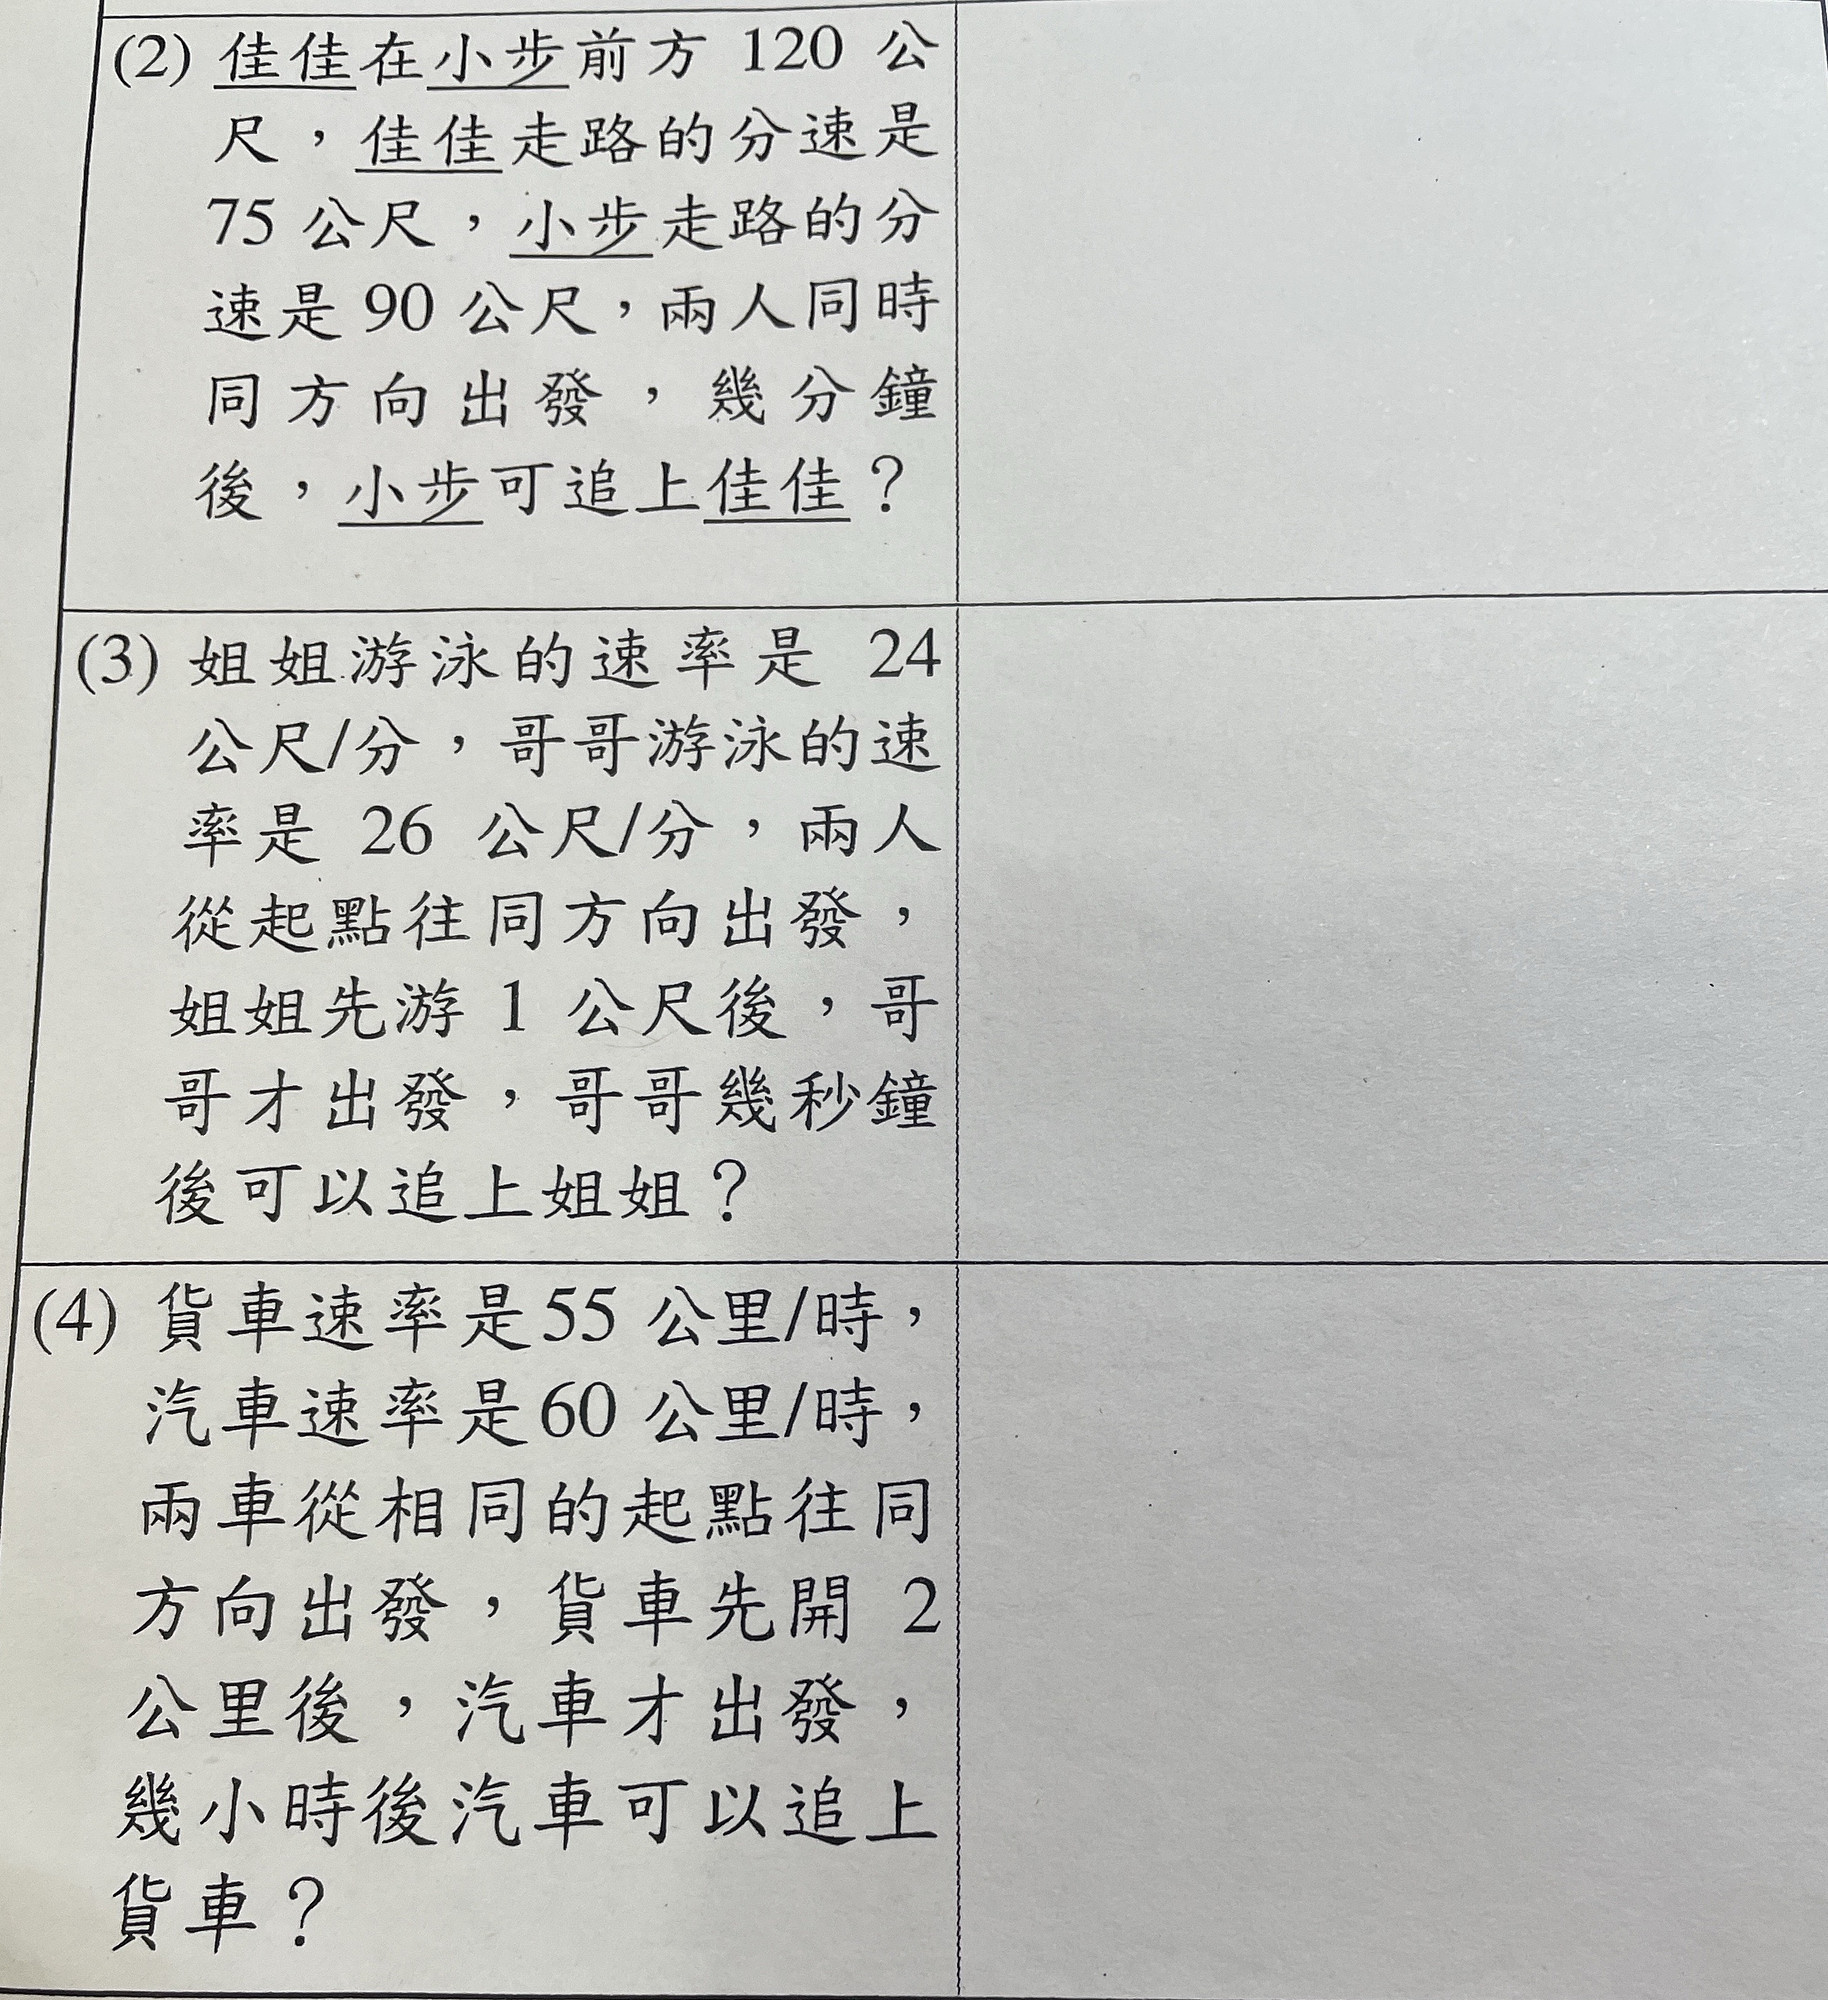 (2) 佳佳在小步前方 120 公
尺，佳佳走路的分速是
75 公尺，小步走路的分
速是 90 公尺，兩人同時
同方向出發，幾分鐘
後，小步可追上佳佳？
(3) 姐姐游泳的速率是 24
公尺/分，哥哥游泳的速
率是 26 公尺/分，兩人
從起點往同方向出發，
姐姐先游 1 公尺後，哥
哥才出發，哥哥幾秒鐘
後可以追上姐姐？
(4) 貨車速率是55 公里/時，
汽車速率是60 公里/時，
兩車從相同的起點往同
方向出發，貨車先開 2
公里後，汽車才出發，
幾小時後汽車可以追上
貨車？